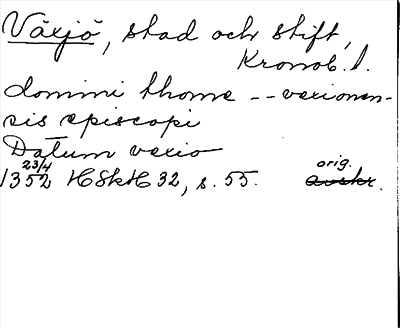 Växjö, stad och stift,
Kronob. l.
domini thome -- vexionen-
sis episcopi
Datum vexio
23/4
1352 HSkH 32, s. 55. orig.
avskr.